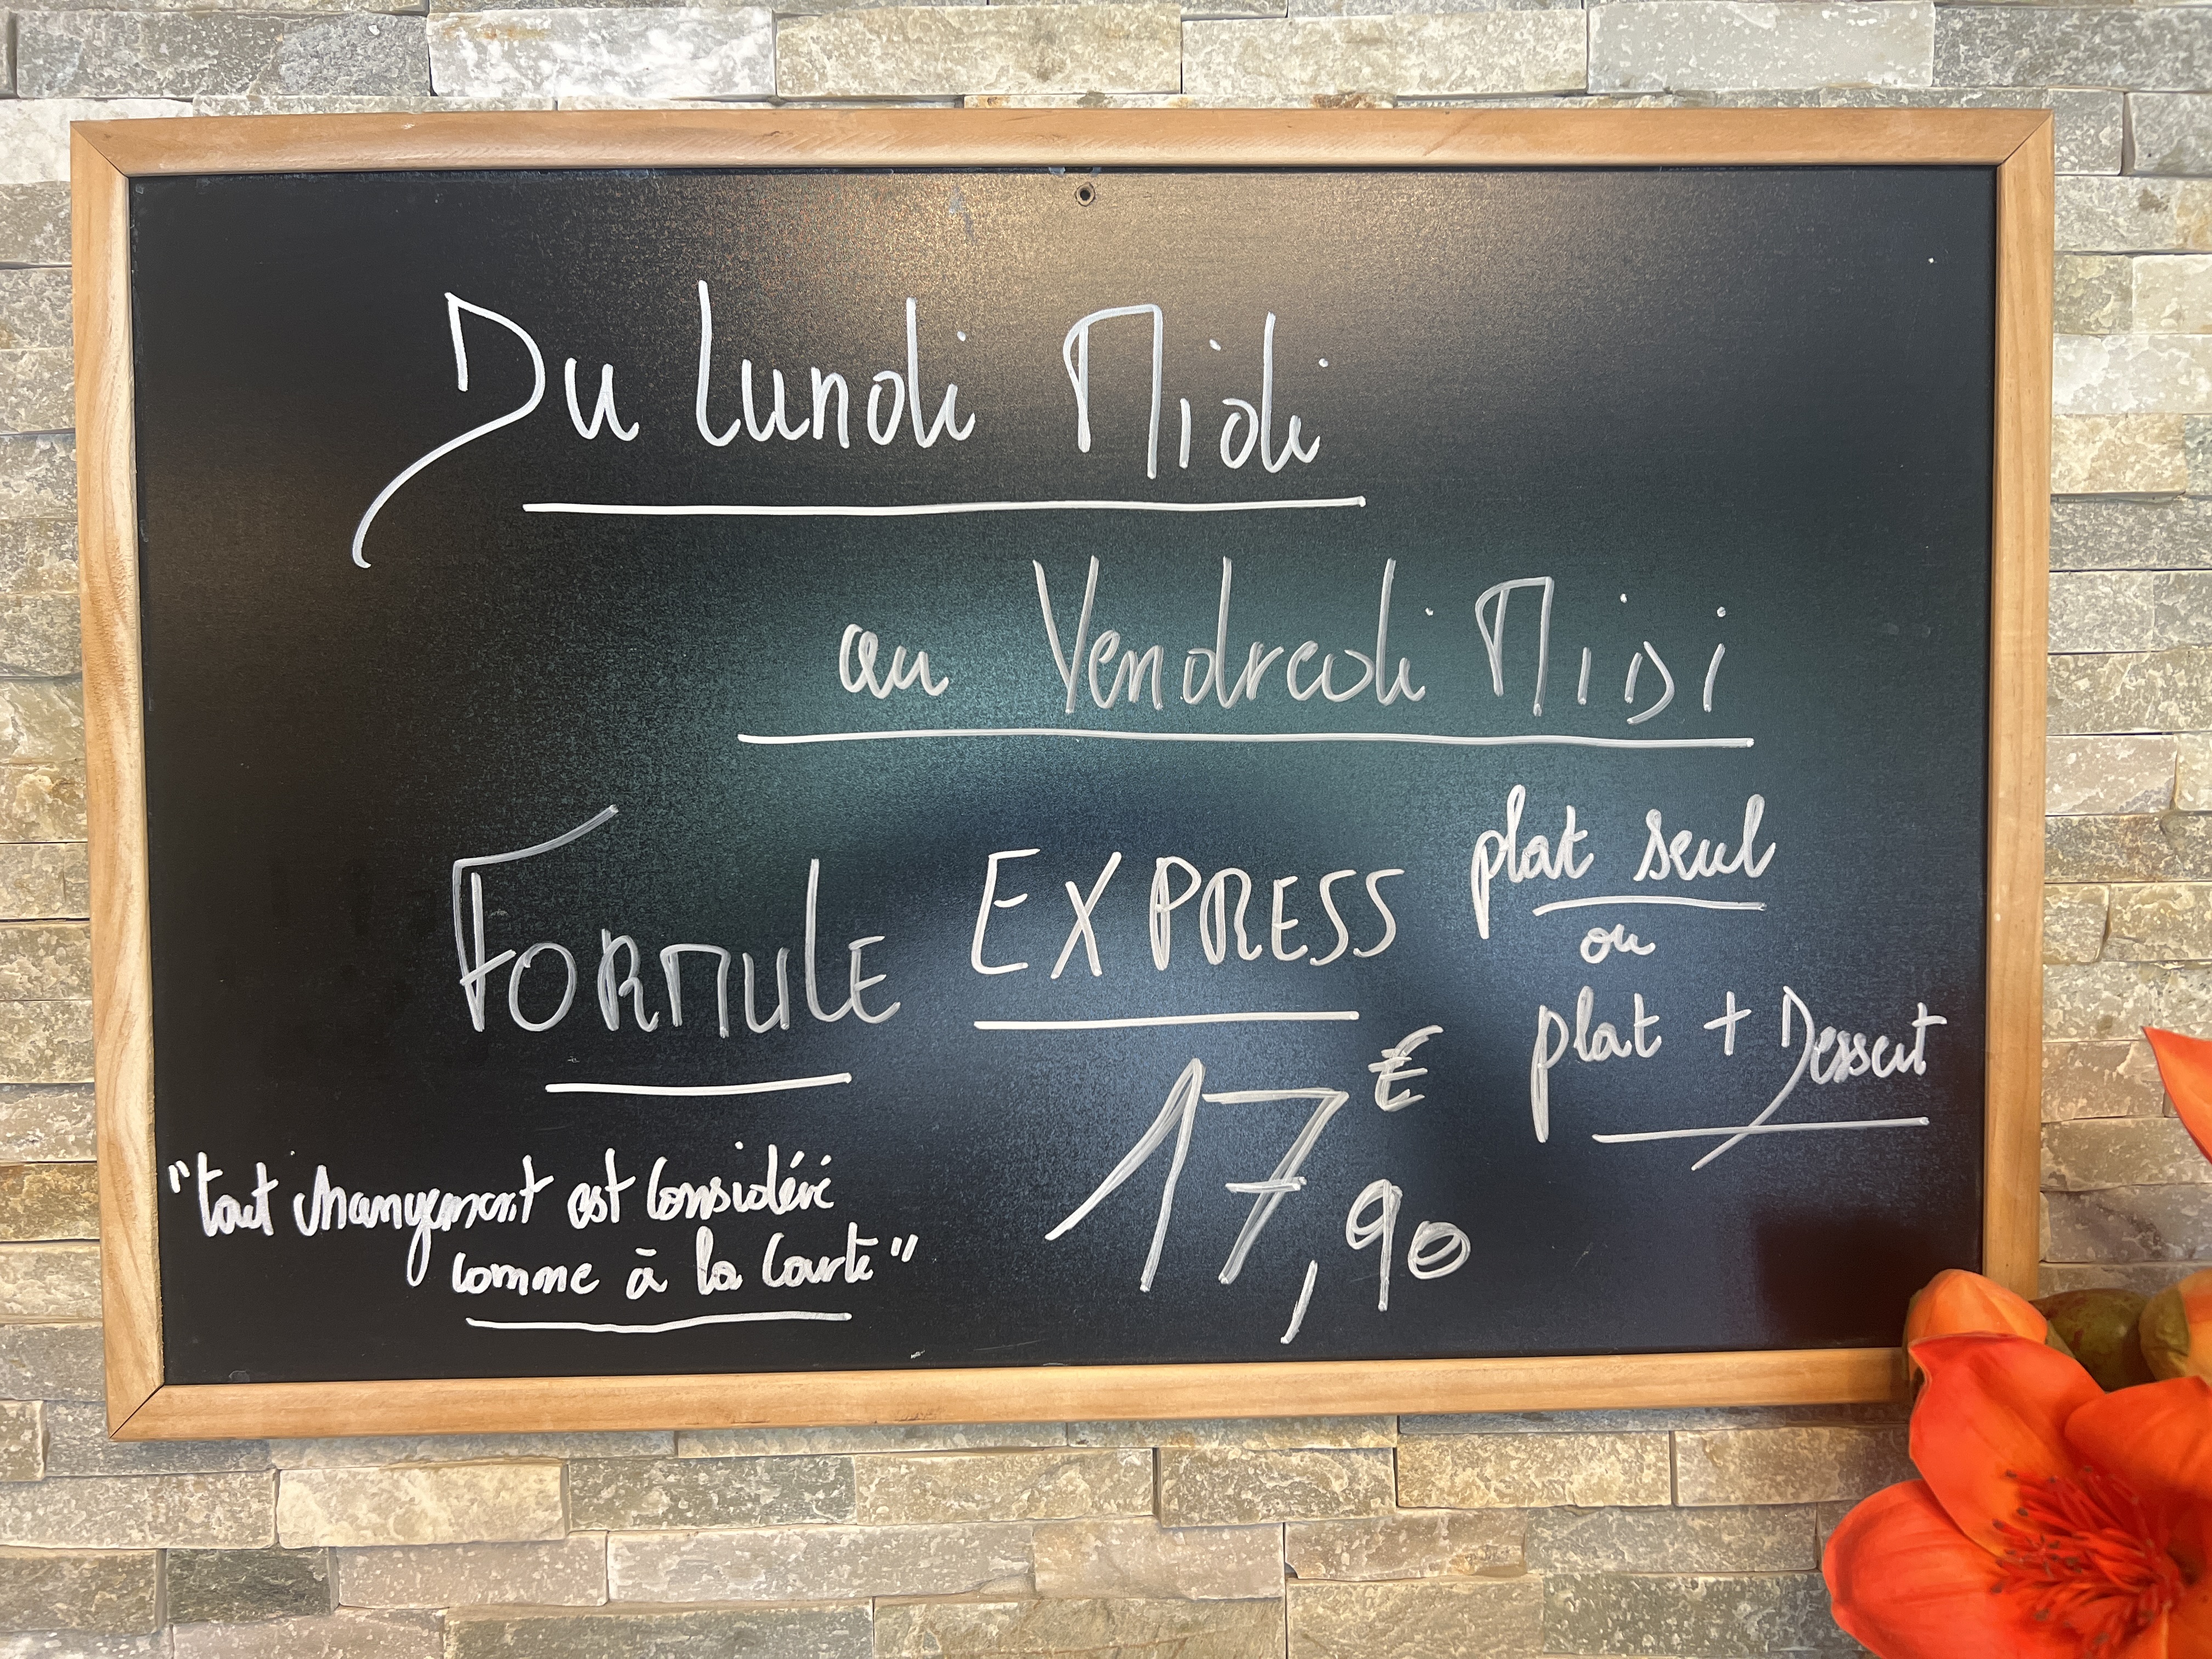 Du Lundi Midi
au Vendredi MIDI
FORMULE EXPRESS
plat seul
ou
plat + Dessert
17,90 €
"tout changement est considéré
comme à la Carte"